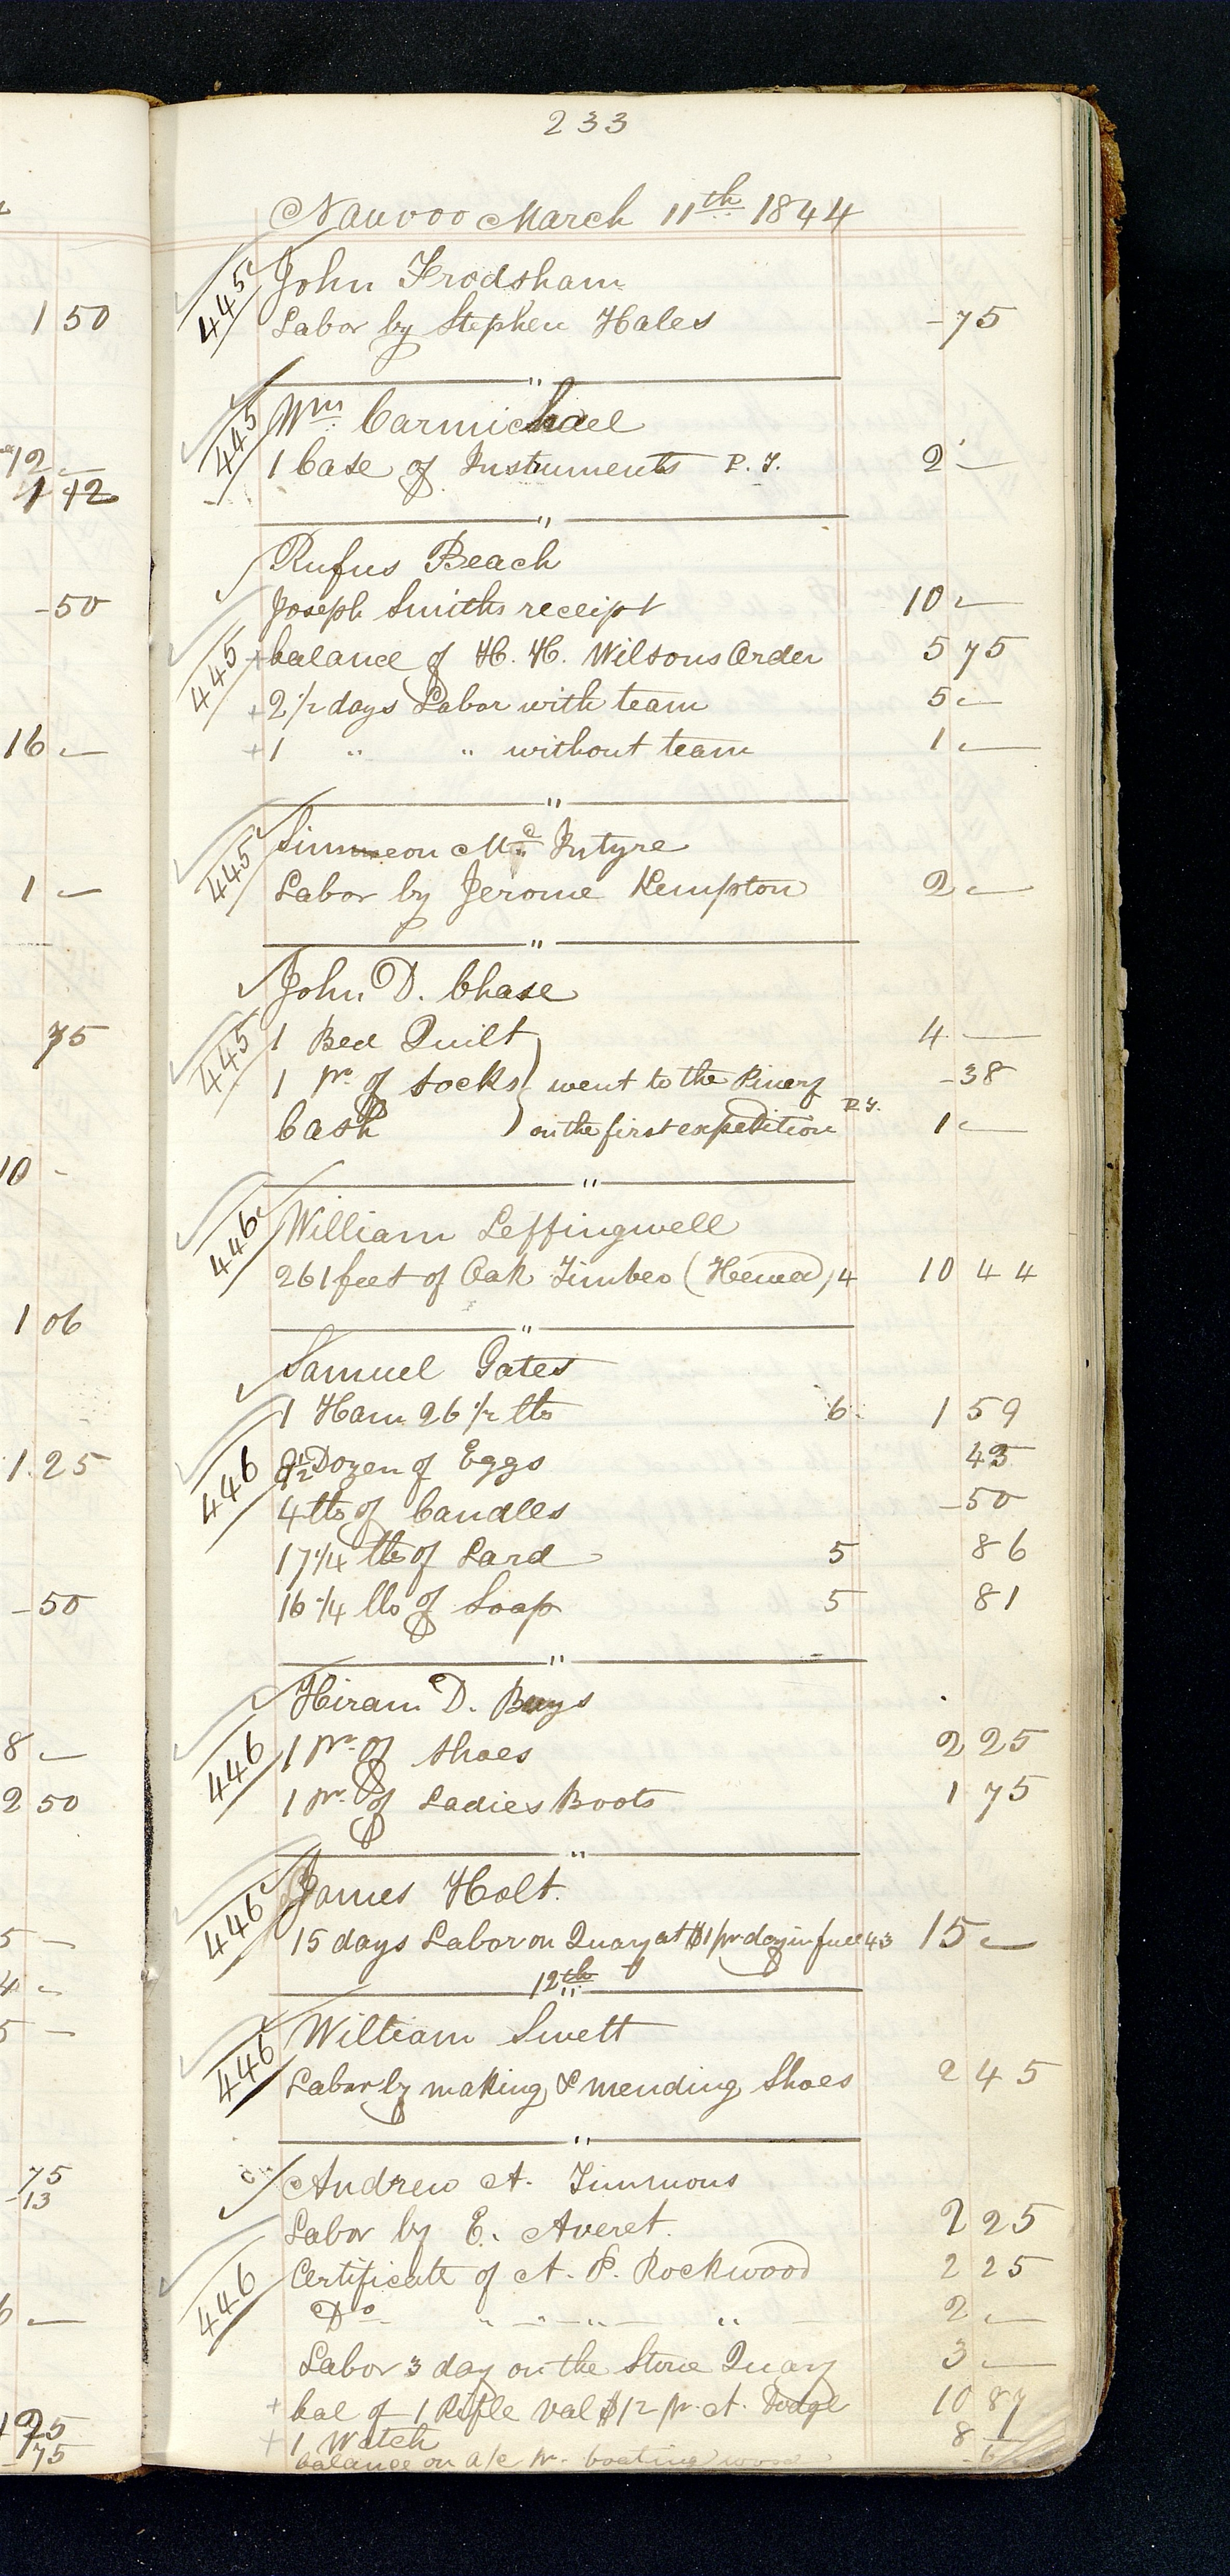 233
Nauvoo March 11th 1844
445 John Frodsham
Labor by Stephen Hales -75
"
445 Wm Carmichael
1 Case of Instruments P. T. 2 —
"
Rufus Beach
Joseph Smiths receipt 10 —
445 + balance of H. H. Wilsons Order 5 75
+ 2 1/2 days Labor with team 5 —
+ 1 " " without team 1 —
"
445 Simeon Mc Intyre
Labor by Jerome Kempton 2 —
"
John D. Chase
445 1 Bed Quilt 4 —
1 pr of Socks } went to the Pinery -38
Cash } on the first expedition P. T. 1 —
"
446 William Leffingwell
261 feet of Oak Timber (Hewed) 4 10 44
"
Samuel Gates
1 Ham 26 1/2 lbs 6 1 59
446 Dozen of Eggs 43
4 lbs of Candles -50
17 1/4 lbs of Lard 5 86
16 1/4 lbs of Soap 5 81
"
Hiram D. Buys
446 1 pr of Shoes 2 25
1 pr. of Ladies Boots 1 75
"
446 James Holt.
15 days Labor on Quary at $1 pr day in full 43 15 —
12th
446 William Swett
Labor by making & mending Shoes 2 45
"
Andrew A. Timmons
Labor by E. Averet. 2 25
446 Certificate of A. P. Rockwood 2 25
Do " " " " 2 —
Labor 3 day on the Stone Quary 3 —
+ bal of 1 Rifle val $12 pr. A. Dodge 10 87
+ 1 Watch 8 —
balance on a/c pr. boating wood
1 50
12 —
-50
16 —
1 —
75
10 -
1 06
1.25
-50
8 —
2 50
5 —
4 —
5 —
75
-13
6 —
75